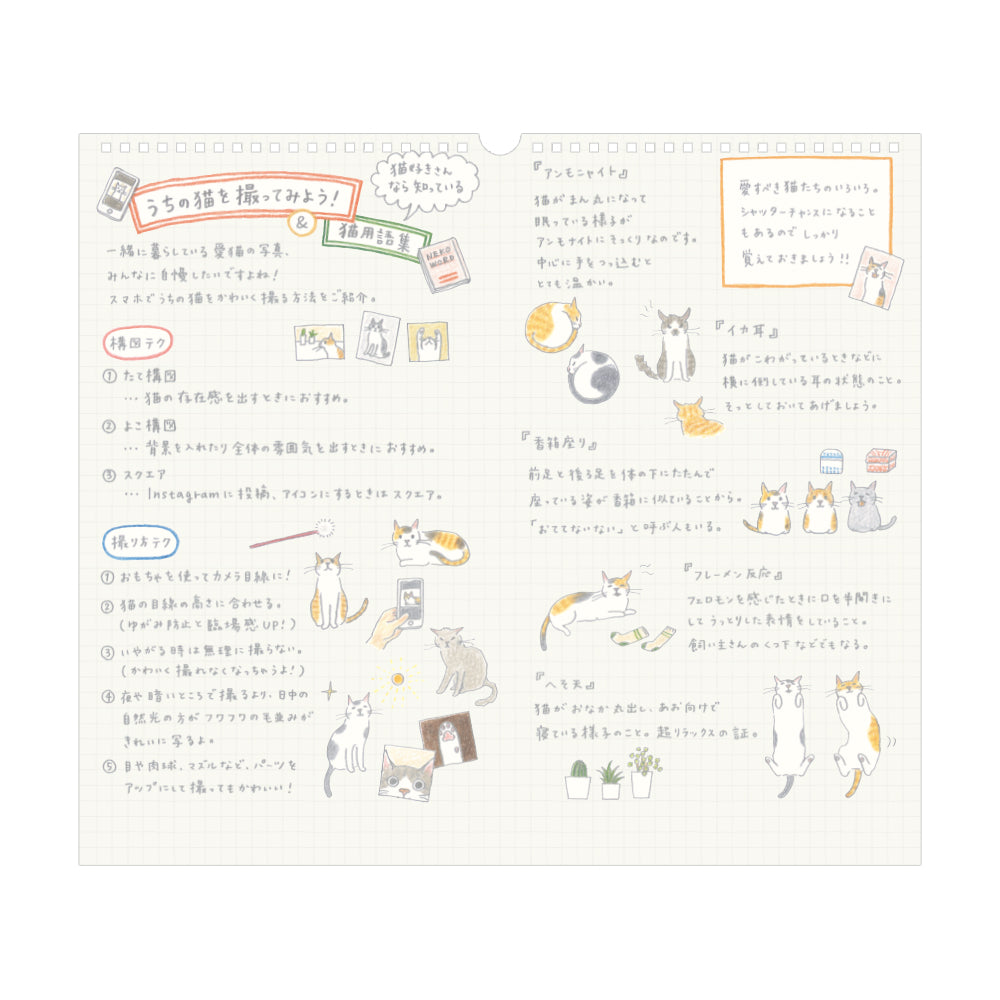 うちの猫を撮ってみよう!
&
猫用語集
猫好きさん
なら知っている
NEKO
WORD
一緒に暮らしている愛猫の写真、
みんなに自慢したいですよね!
スマホでうちの猫をかわいく撮る方法をご紹介。
構図テク
① たて構図
… 猫の存在感を出すときにおすすめ。
② よこ構図
… 背景を入れたり全体の雰囲気を出すときにおすすめ。
③ スクエア
… Instagramに投稿、アイコンにするときはスクエア。
撮り方テク
① おもちゃを使ってカメラ目線に!
② 猫の目線の高さに合わせる。
(ゆがみ防止と臨場感UP!)
③ いやがる時は無理に撮らない。
(かわいく撮れなくなっちゃうよ!)
④ 夜や暗いところで撮るより、日中の
自然光の方がフワフワの毛並みが
きれいに写るよ。
⑤ 目や肉球、マズルなど、パーツを
アップにして撮ってもかわいい!
『アンモニャイト』
猫がまん丸になって
眠っている様子が
アンモナイトにそっくりなのです。
中心に手をつっ込むと
とても温かい。
愛すべき猫たちのいろいろ。
シャッターチャンスになること
もあるのでしっかり
覚えておきましょう!!
『イカ耳』
猫がこわがっているときなどに
横に倒している耳の状態のこと。
そっとしておいてあげましょう。
『香箱座り』
前足と後ろ足を体の下にたたんで
座っている姿が香箱に似ていることから。
「おててないない」と呼ぶ人もいる。
『フレーメン反応』
フェロモンを感じたときに口を半開きに
してうっとりした表情をしていること。
飼い主さんのくつ下などでもなる。
『へそ天』
猫がおなか丸出し、あお向けで
寝ている様子のこと。超リラックスの証。